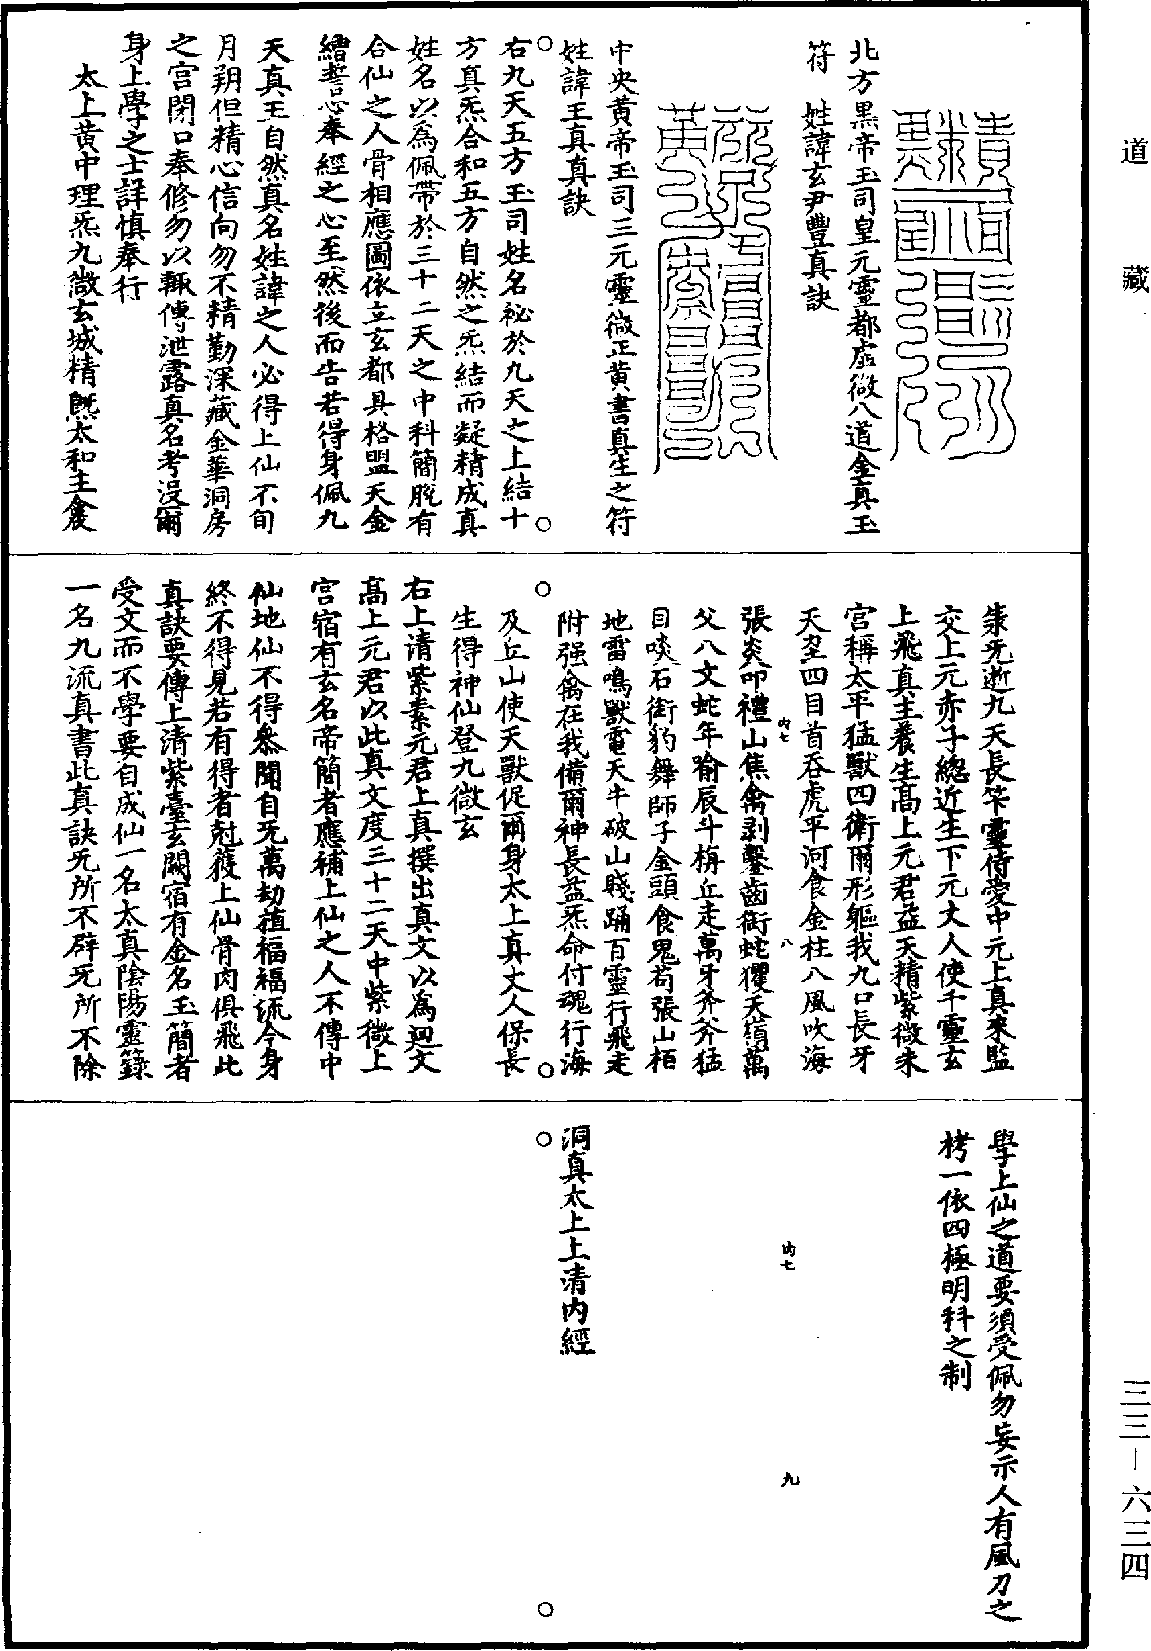 道藏
三三—六三四
北方黑帝玉司皇元靈都虛微八道金真玉
符　姓諱玄尹豐真訣
中央黃帝玉司三元靈微正黃書真生之符
姓諱王真真訣
右九天五方玉司姓名祕於九天之上結十
方真炁合和五方自然之炁結而凝精成真
姓名以為佩帶於三十二天之中科簡脫有
合仙之人骨相應圖依立玄都具格盟天金
繒誓心奉經之心至然後而告若得身佩九
天真王自然真名姓諱之人必得上仙不旬
月朔但精心信向勿不精勤深藏金華洞房
之宮閉口奉修勿以輙傳泄露真名考沒爾
身上學之士詳慎奉行
太上黃中理炁九微玄城精既太和主震
隶旡逝九天長笇靈侍愛中元上真來監
交上元赤子總近生下元丈人使千靈玄
上飛真主養生高上元君益天精紫微朱
宮稱太平猛獸四衛爾形軀我九口長牙
天四目首吞虎平河食金柱八風吹海
張炎叩禮山焦禽剥鑿齒銜蛇玃天嶺萬
父八文蛇年喻辰斗柄丘走萬牙斧斧猛
目啖石銜豹舞師子金頭食鬼苟張山栢
地雷鳴獸電天牛破山賤踊百靈行飛走
附强禽在我備爾神長益炁命付魂行海
及丘山使天獸促爾身太上真丈人保長
生得神仙登九微玄
右上清紫素元君上真撰出真文以為迴文
高上元君以此真文度三十二天中紫微上
宮宿有玄名帝簡者應補上仙之人不傳中
仙地仙不得叅聞自旡萬劫植福福流今身
終不得見若有得者尅獲上仙骨肉俱飛此
真訣要傳上清紫臺玄闕宿有金名玉簡者
受文而不學要自成仙一名太真陰陽靈籙
一名九流真書此真訣旡所不辟旡所不除
內七
八
學上仙之道要須受佩勿妄示人有風刀之
栲一依四極明科之制
內七
九
洞真太上上清內經